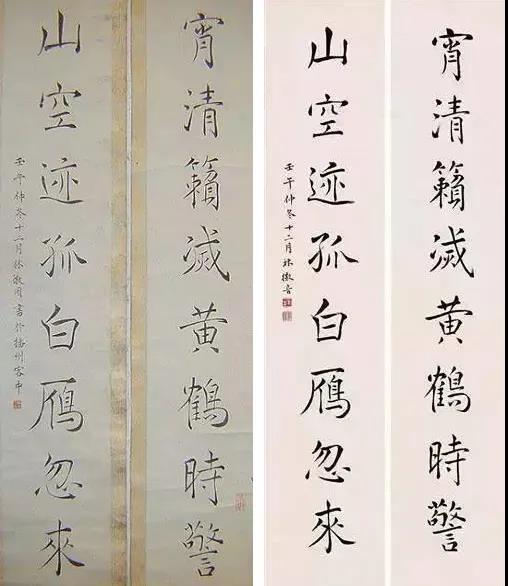 宵清籟滅黄鶴時警
山空迹孤白鴈忽來
壬午仲冬十二月林徽書於州客中
宵清籟滅黄鶴時警
山空迹孤白鴈忽來
壬午仲冬十二月林徽音